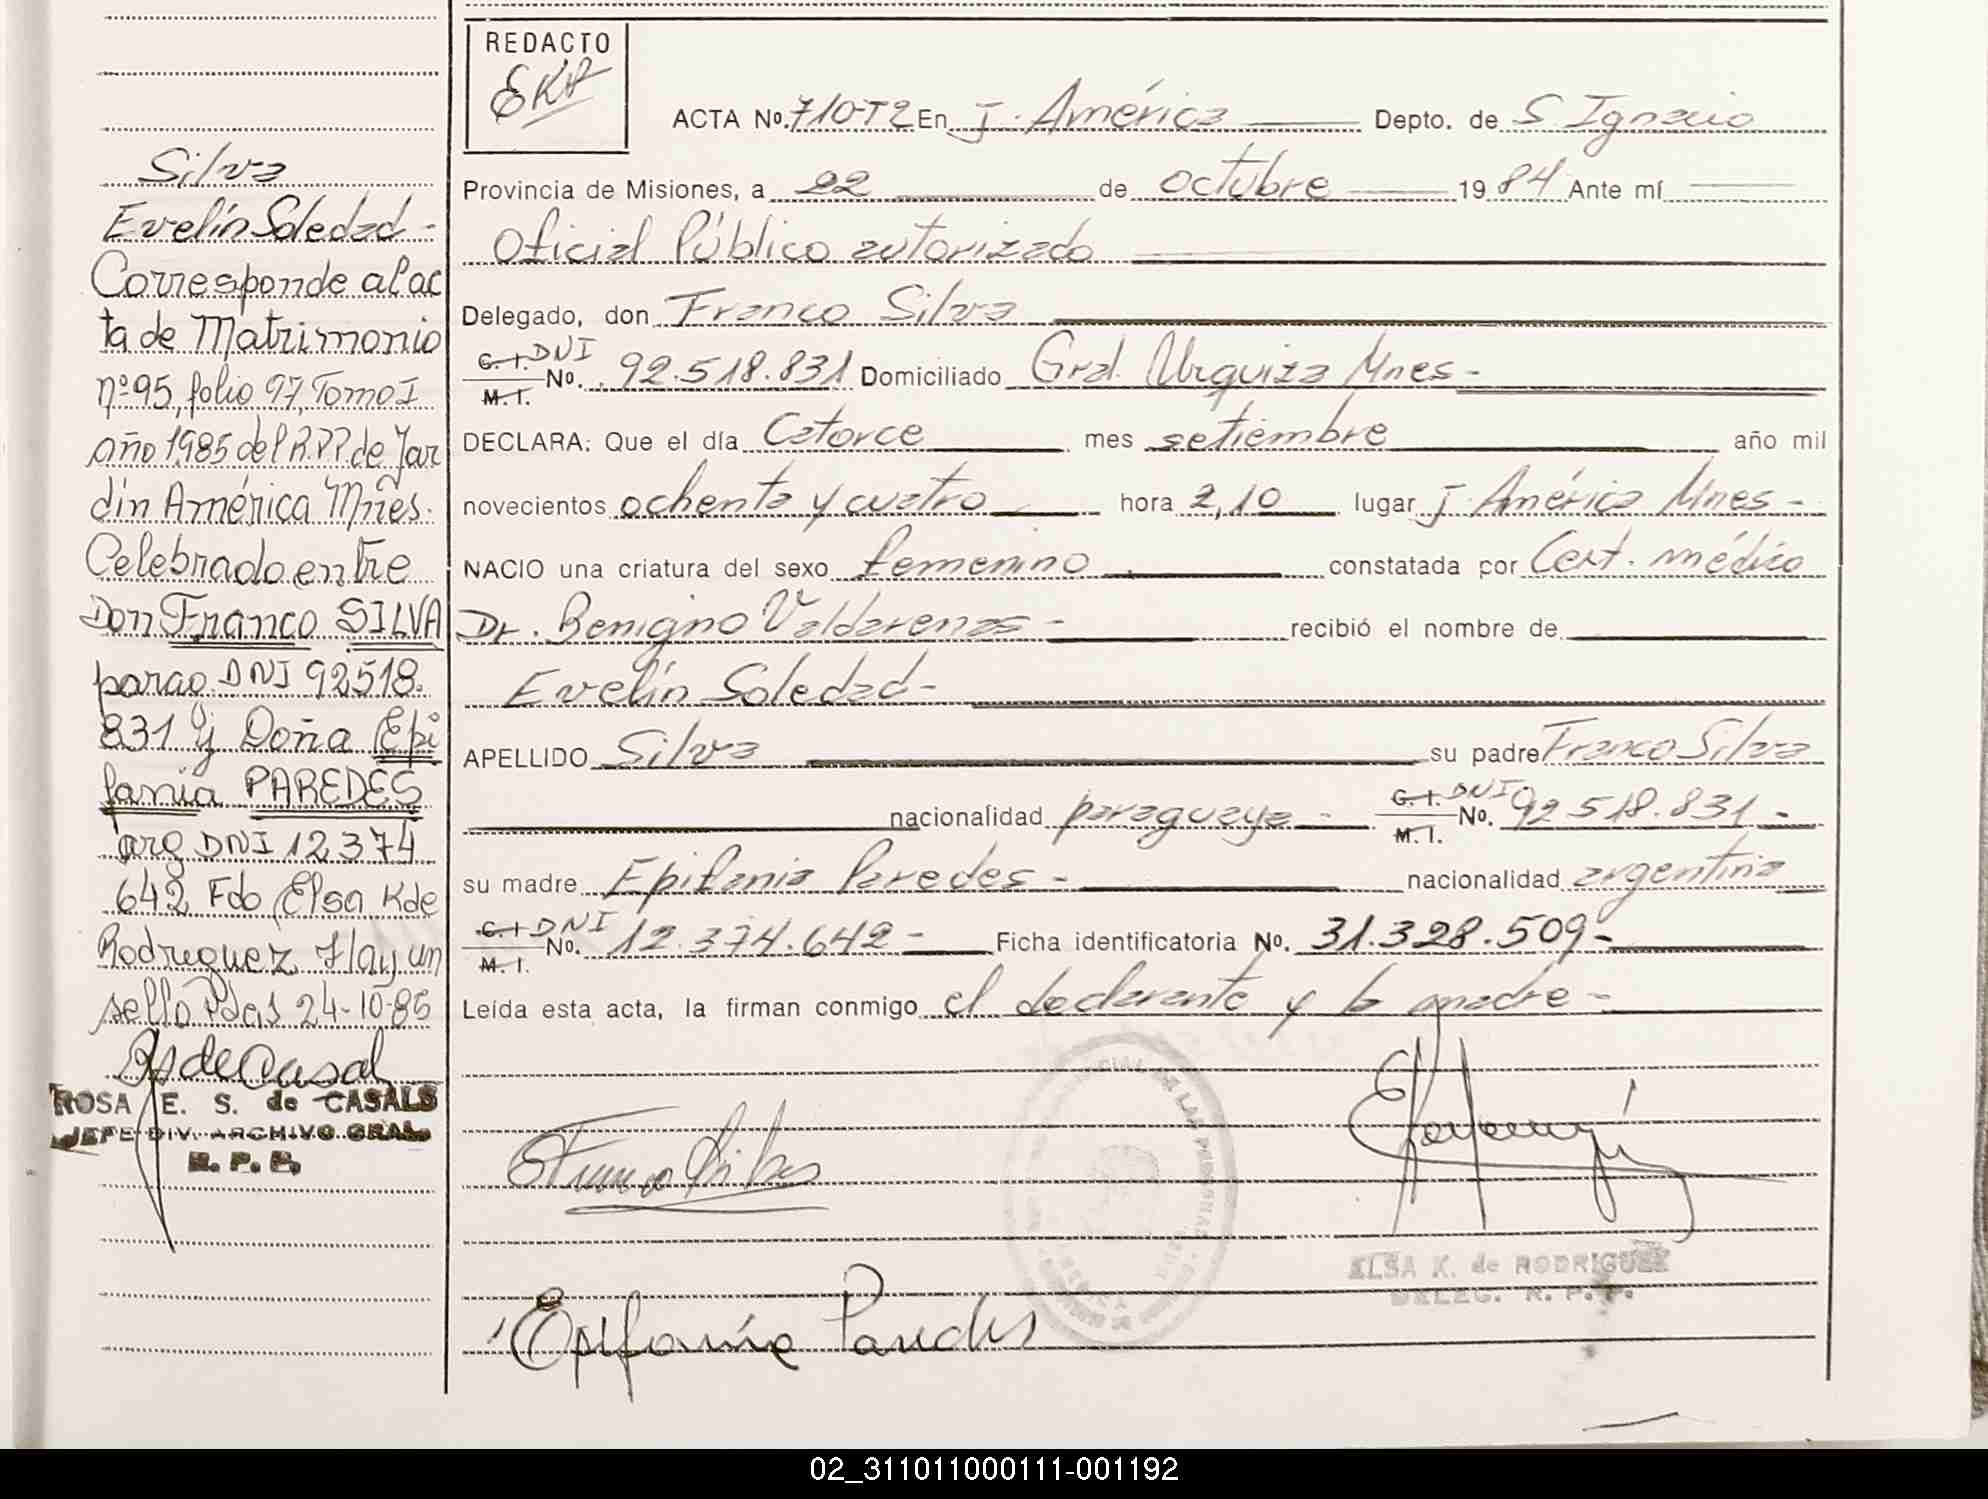 Silva
Evelín Soledad-
Corresponde al ac
ta de Matrimonio
nº 95, folio 97, Tomo I
año 1985 del R.P.P. de Jar
din América Mnes.
Celebrado entre
Don Franco SILVA
parag DNI 92518.
831 y Doña Epi
fania PAREDES
arg DNI 12374
642 Fdo Elsa K de
Rodriguez Hay un
sello Pdas 24-10-85
ROSA E. S. de CASALS
JEFE DIV. ARCHIVO GRAL.
R. P. P.
REDACTO
EKR
ACTA Nº. 710-T2 En J. América Depto. de S. Ignacio
Provincia de Misiones, a 22 de octubre 1984 Ante mí
Oficial Público autorizado
Delegado, don Franco Silva
C. I. DNI
M. I. No. 92.518.831 Domiciliado Gral. Urquiza Mnes-
DECLARA: Que el día Catorce mes setiembre año mil
novecientos ochenta y cuatro hora 2,10 lugar J. América Mnes-
NACIO una criatura del sexo femenino constatada por Cert. médico
Dr. Benigno Valdarenas- recibió el nombre de
Evelín Soledad-
APELLIDO Silva su padre Franco Silva
nacionalidad paraguaya- C. I. DNI
M. I. No. 92.518.831-
su madre Epifania Paredes- nacionalidad argentina
C. I. DNI
M. I. No. 12.374.642- Ficha identificatoria No. 31.328.509-
Leída esta acta, la firman conmigo el declarante y la madre-
Franco Silva
ELSA K. de RODRIGUEZ
DELEG. R. P. P.
Epifania Paredes
02_311011000111-001192